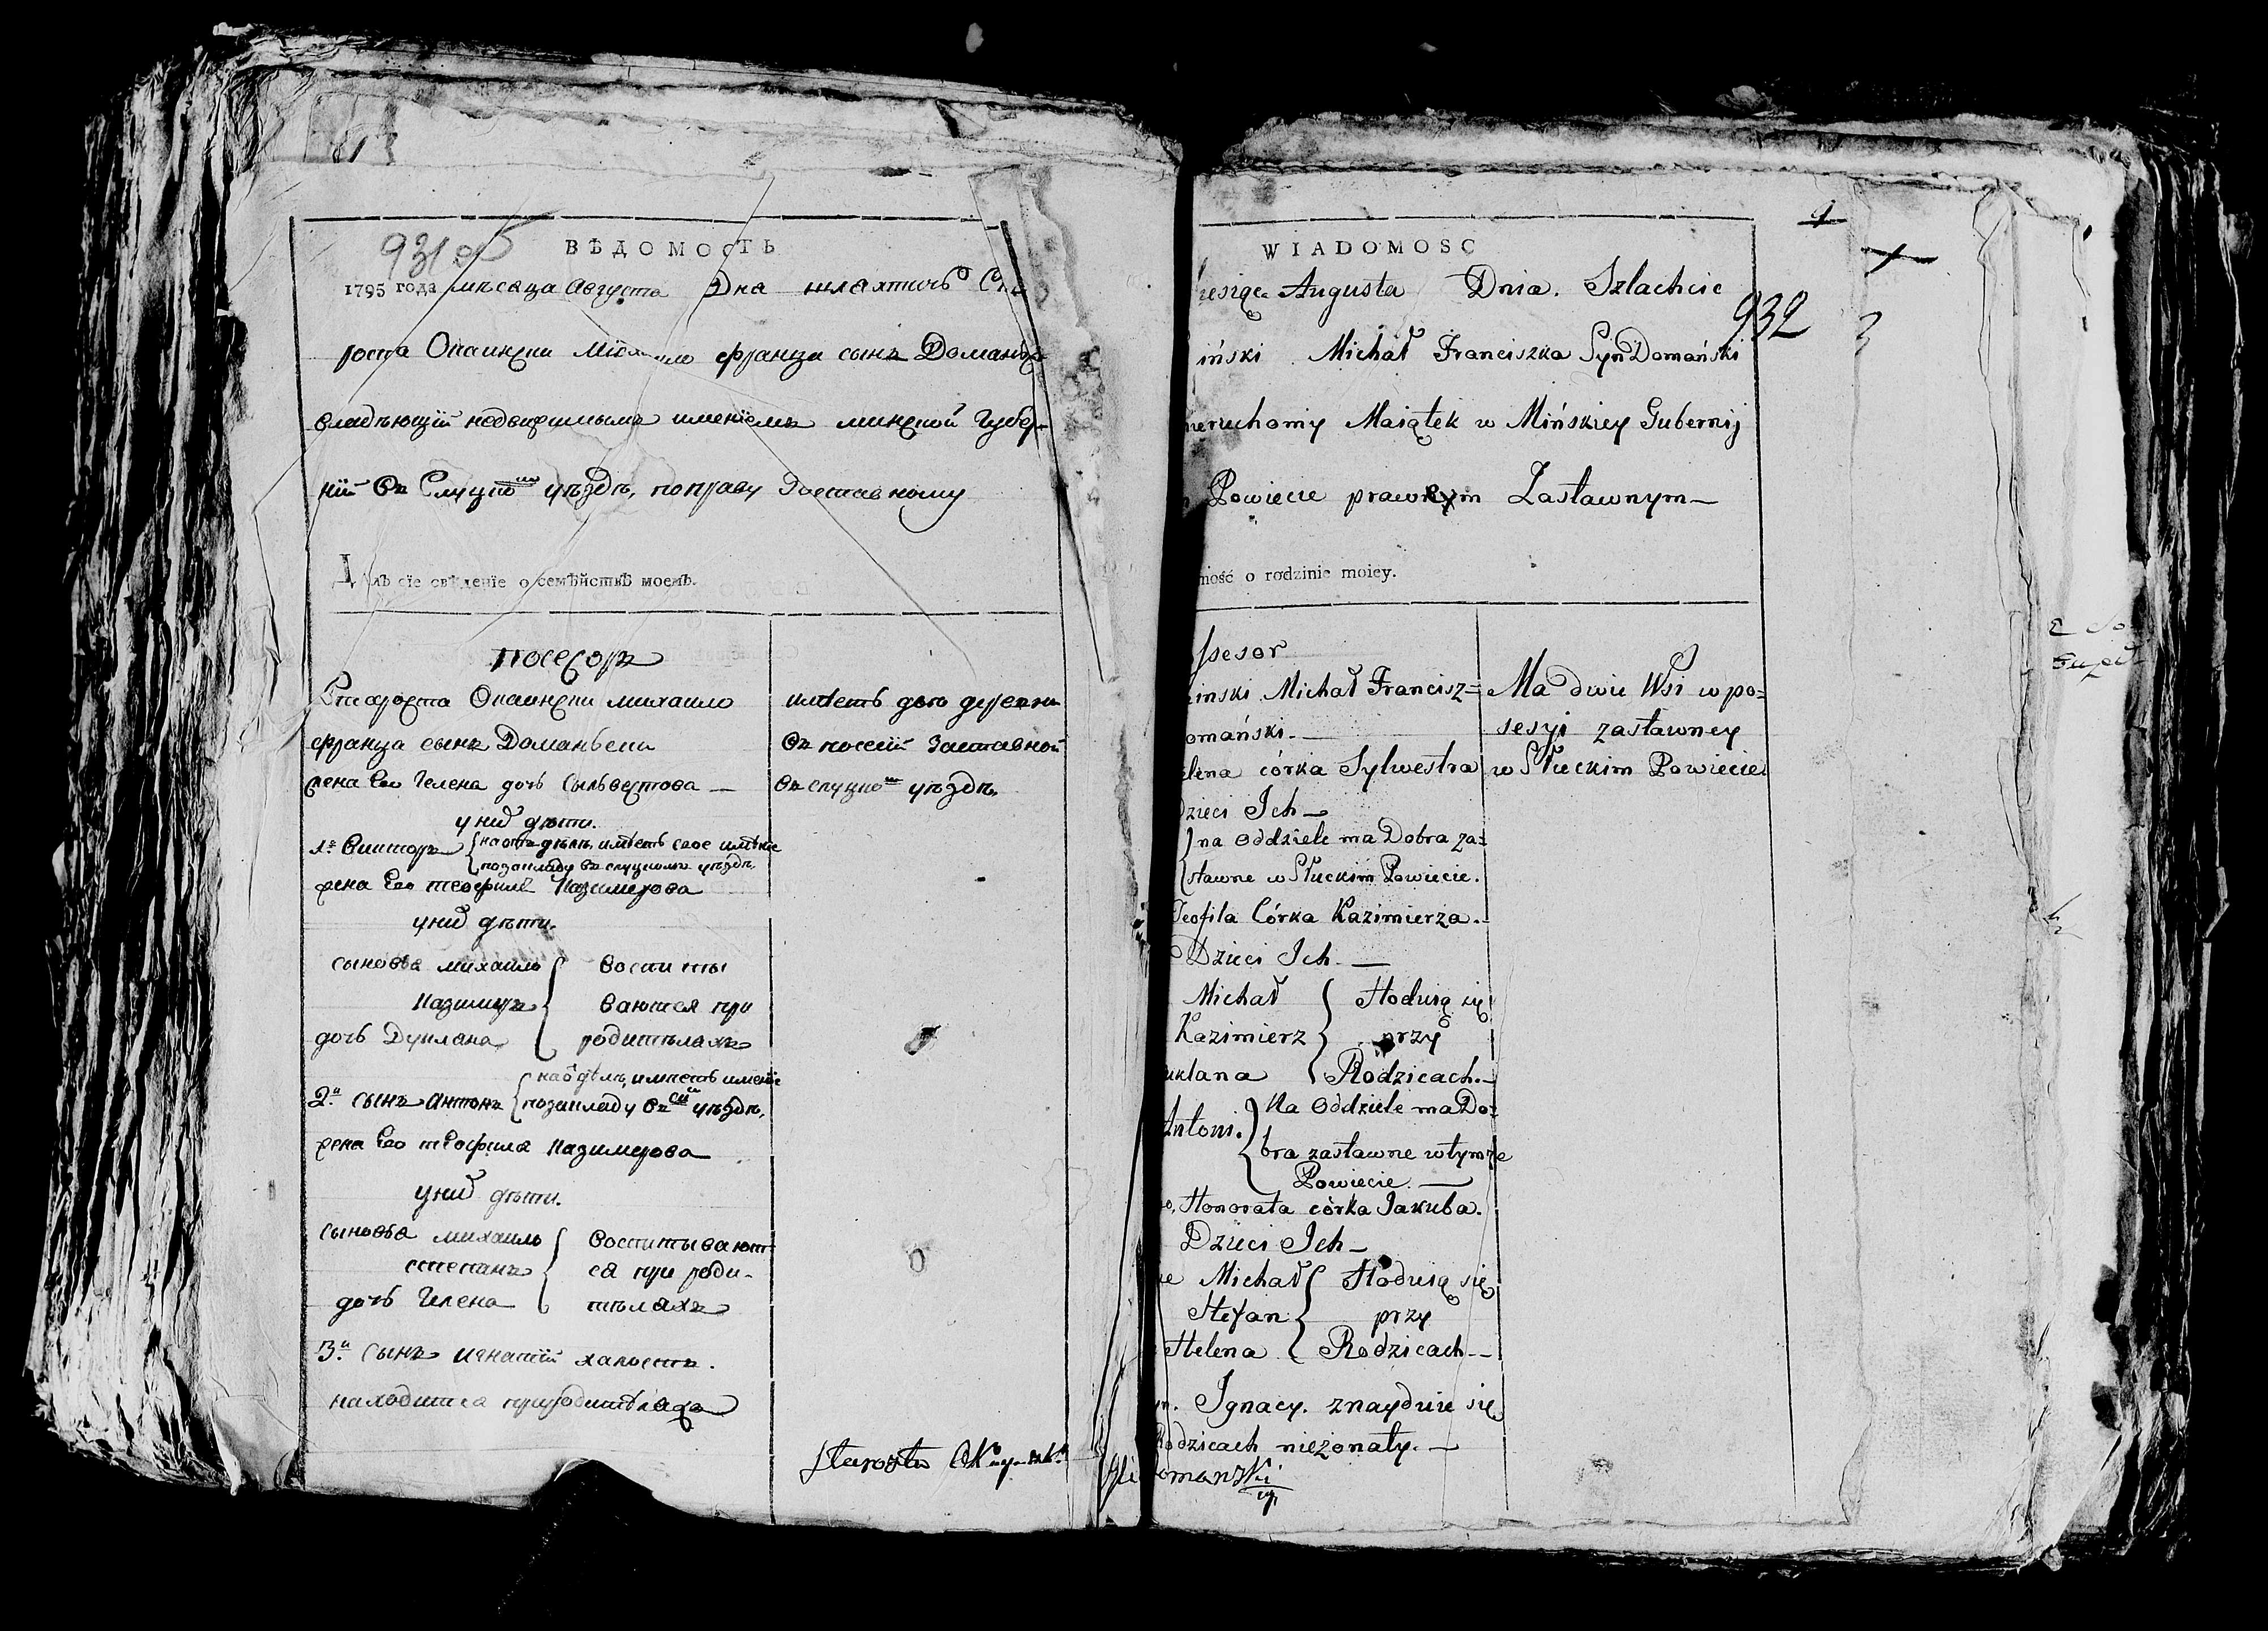 931 об
ВѢДОМОСТЬ
1795 года мѣсаца Августа Дна шляхтичъ Ста
роста Опаински Михайло францa сынъ Доманьски
владѣющій недвижимымъ именіемъ минской Губер
ніи въ Слуцкомъ уѣздѣ, по праву заставному
Далъ сіе свѣденіе о семѣйствѣ моемъ.
посесоръ
Староста Опаински михаило
франца сынъ Доманьски
жена Его Гелена дочь Сыльвестрова —
у них дѣти.
1й Викторъ { на отъ дѣлѣ, имѣетъ свое имѣніе
по закладу въ слуцкомъ уѣздѣ.
жена Его теофиля Казимерова
у них дѣти.
сыновья михаило { воспиты
Казимиръ ваются при
дочь Дуклана родителяхъ
2й сынъ Антонъ { на отдѣлѣ, имѣетъ имѣніе
по закладу въ сем уѣздѣ,
жена Его теофиля Казимерова
у них дѣти.
сыновья михаило { воспитывают
степанъ ся при роди-
дочь Гелена тѣляхъ
3й сынъ игнатій халостъ.
находится при родителяхъ
имѣетъ двѣ деревни
въ посесіи заставной
въ слуцкомъ уѣздѣ.
Starosta
9
932
WIADOMOSC
iesiąca Augusta Dnia. Szlachcic
iński Michał Franciszka Syn Domański
nieruchomy Maiątek w Mińskiey Gubernij
Powiecie prawem Zastawnym —
mość o rodzinie moiey.
ssesor
inski Michał Francisz=
omański. —
elena córka Sylwestra
dzieci Ich —
} na Oddziele ma Dobra za=
stawne w Słuckim Powiecie.
Teofila Córka Kazimierza. —
Dzieci Ich. —
Michał { Hodują się
Kazimierz przy
uklana Rodzicach. —
Antoni. { Na Oddziele ma Do=
bra zastawne w tymże
Powiecie. —
o, Honorata córka Jakuba.
Dzieci Ich —
ie Michał { Hodują się
Stefan przy
Helena Rodzicach —
yn. Ignacy. znayduie się
Rodzicach nieżonaty. —
omanski
Ma dwie Wsi w po=
sesyi zastawney
w Słuckim Powiecie